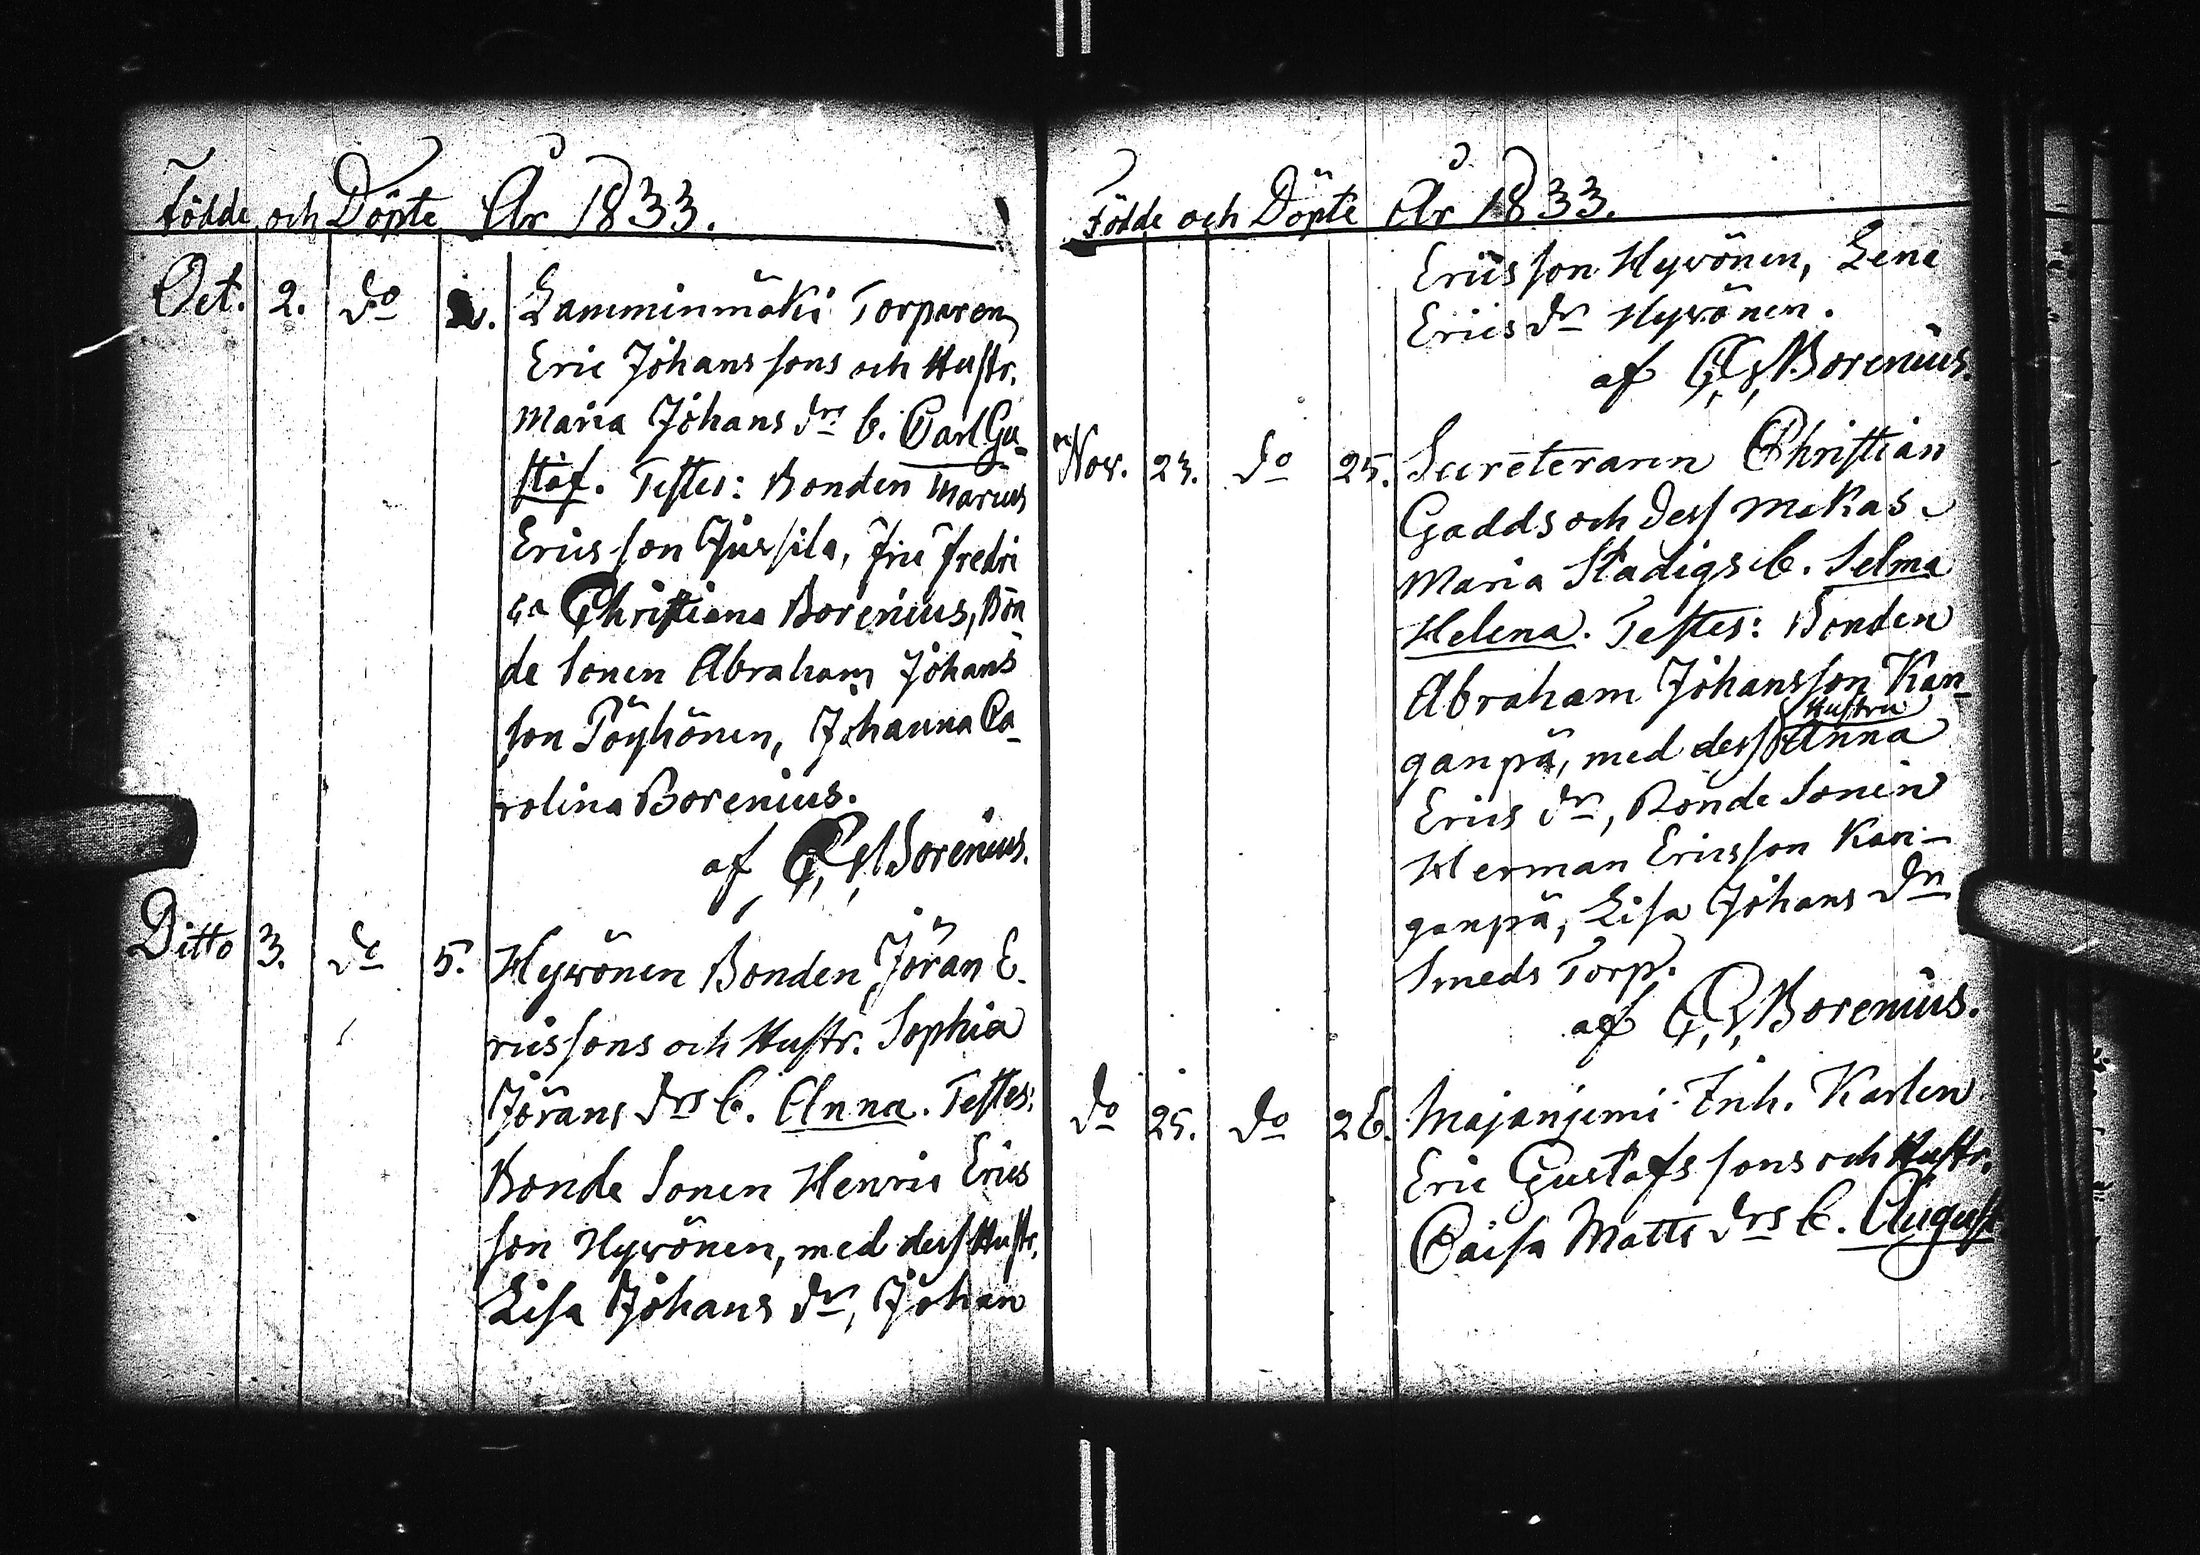 Födde och Döpte År 1833.
Oct. 2. do Lamminmäki Torparen
Eric Johanssons och Hustr.
Maria Johans drs b. Carl Gu-
staf. Testes: Bonden Marcus
Ericsson Jussila, Fru Fredri
ca Christiana Borenius, Bon
de Sonen Abraham Johans
son Pöyhönen, Johanna Ca-
rolina Borenius.
af Borenius.
Ditto 3. do 5. Hyvönen Bonden Jöran E.
ricssons och Hustr. Sophia
Jörans drs b. Anna. Testes:
Bonde Sonen Henric Erics
son Hyvönen, med dess Hustr.
Lisa Johans dr, Johan
Födde och Döpte År 1833.
Ericsson Hyvönen, Lena
Erics dr Hyvönen.
af Borenius.
Nov. 23. do 25. Secreteraren Christian
Gadds och dess Makas
Maria Stadigs b. Selma
Helena. Testes: Bonden
Abraham Johansson Kan-
ganpä, med dess Hustru Anna
Erics dr, Bonde Sonen
Herman Ericsson Kan-
ganpä, Lisa Johans dr
Smeds Torp.
af Borenius.
do 25. do 26. Majanjemi Inh. Karlen
Eric Gustafs sons och Hustr.
Caisa Matts drs b. August